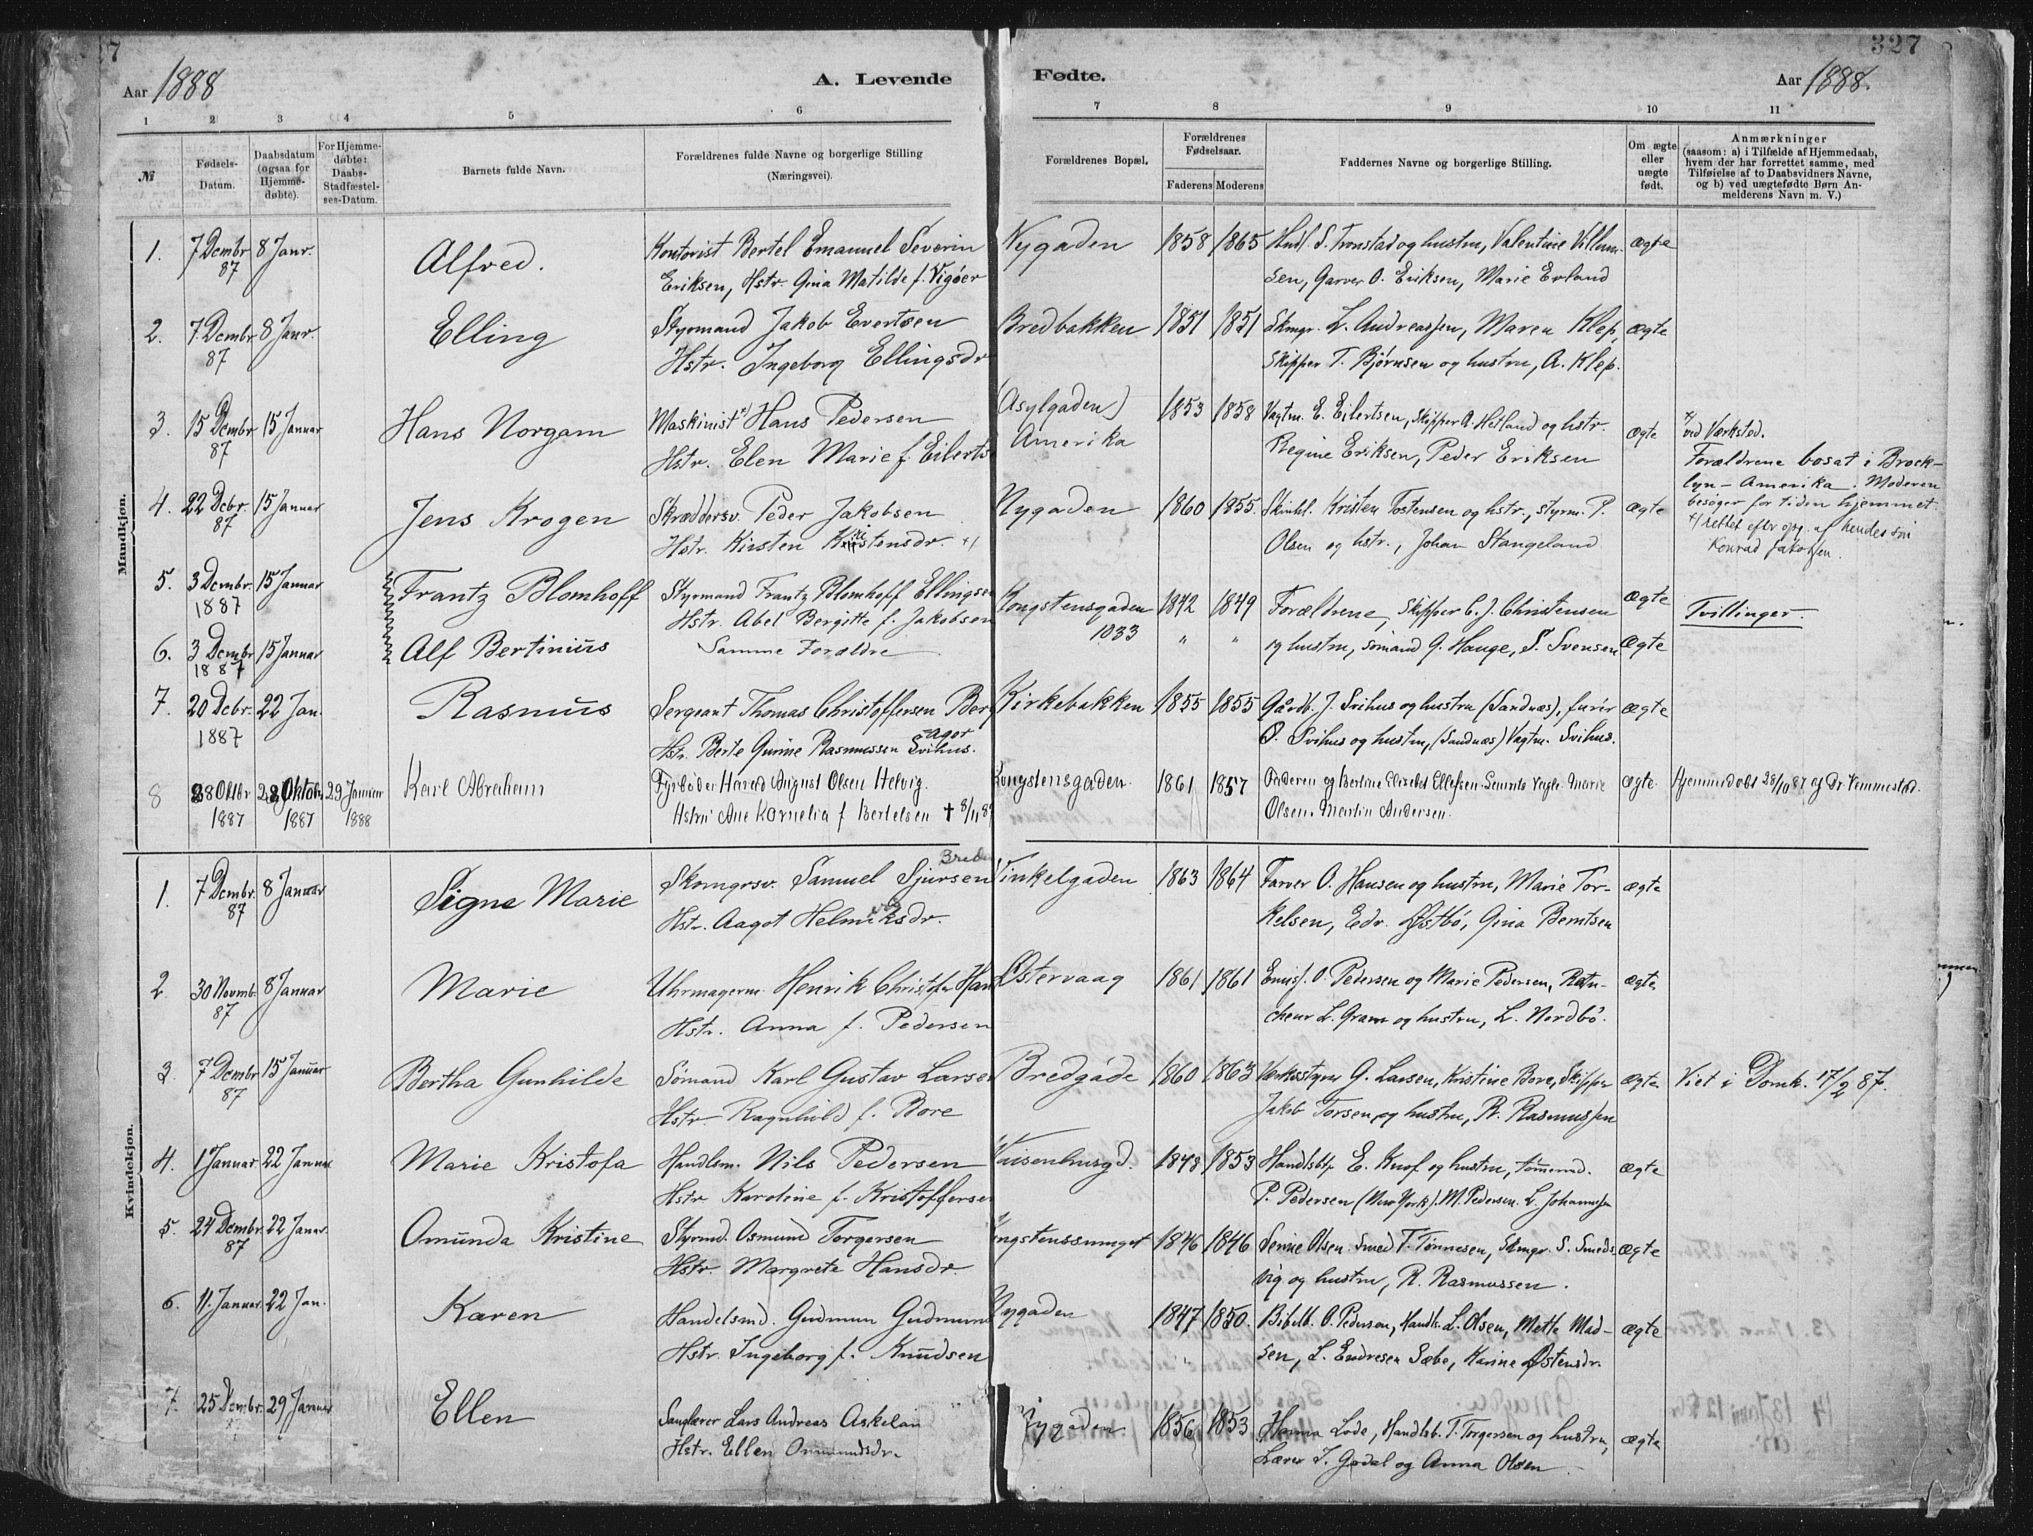 7
327
Aar 1888
A. Levende
Fødte.
Aar 1888.
1 2 3 4 5 6 7 8 9 10 11
№
Fødsels-
Datum.
Daabsdatum
(ogsaa for
Hjemme-
døbte).
For Hjemme-
døbte:
Daabs-
Stadfæstel-
ses-Datum.
Barnets fulde Navn.
Forældrenes fulde Navne og borgerlige Stilling
(Næringsvei).
Forældrenes Bopæl.
Forældrenes
Fødselsaar.
Faderens Moderens
Faddernes Navne og borgerlige Stilling.
Om ægte
eller
uægte
født.
Anmærkninger
(saasom: a) i Tilfælde af Hjemmedaab,
hvem der har forrettet samme, med
Tilføielse af to Daabsvidners Navne,
og b) ved uægtefødte Børn An-
melderens Navn m. V.)
Mandkjøn.
1. 7 Dcmbr 8 Janr. Alfred. Kontorist Bertel Emanuel Severin Nygaden 1858 1865 Hndl. S. Tronstad og hustru, Valentine Villum- ægte
87 Eriksen, Hstr. Gina Matilde f. Vigöer sen, Garver O. Eriksen, Marie Erland
2. 7. Dcmbr 8 Janr. Elling Styrmand Jakob Evertsen Bredbakken 1851 1851 Skmgr. L. Andreassen, Maren Klep, ægte
87 Hstr. Ingeborg Ellingsdr Skipper T. Bjørnsen og hustru, A. Klep.
3. 15 Dcmbr 15 Januar Hans Norgam Maskinist x) Hans Pedersen (Asylgaden) 1853 1858 Vagtm. E. Eilertsen, Skipper A. Hetland og hstr. ægte x/ ved Værksted.
87 Hstr. Elen Marie f Eilerts Amerika Regine Eriksen, Peder Eriksen Forældrene bosat i Brook-
lyn - Amerika. Moderen
4. 22 Dcbr. 15 Januar Jens Krogen Skræddersv. Peder Jakobsen Nygaden 1860 1855 Kristen Tostensen og hstr., styrm. P. ægte besöger for tiden hjemmet.
87 Hstr. Kirsten Kristensdr. +/ Olsen og hstr., Johan Stangeland +/ rettet efter opg. af hendes søn
Konrad Jakobsen.
5. 3 Dcmbr. 15 Januar Frantz Blomhoff Styrmand Frantz Blomhoff Ellingsen Kongstensgaden 1842 1849 Forældrene, Skipper C. J. Christensen ægte Tvillinger.
1887 Hstr. Abel Bergitte f. Jakobsen 1033
6. 3 Dcmbr 15 Januar Alf Bertinius Samme Forældre " " og hustru, sömand G. Hauge, S. Svensen Ægte
1887
7. 20 Dcbr. 22 Jan. Rasmus Sergeant Thomas Christoffersen Berg Kirkebakken 1855 1855 Gårdb. J. Svihus og hustru (Sandnæs), furir ægte
1887 Hstr. Berte Gurine Rasmussen Svihus. O. Svihus og hustru, (Sandnæs) Vagtm. Svihus.
8 28 Oktbr 28 Oktob. 29 Januar Karl Abraham Fyrbøder Harald August Olsen Helvig. Kongstensgaden 1861 1857 Faderen og Bertine Elisabet Ellefsen Marie ægte Hjemmedøbt 28/10 87 af Dr
1887 1887 1888 Hstru Ane Kornelia f Bertelsen + 8/11 8 Olsen. Martin Andersen.
Kvindekjøn.
1. 7 Dcmbr. 8 Januar Signe Marie Skomgrsv. Samuel Sjursen Vinkelgaden 1863 1864 Farver O. Hansen og hustru, Marie Tor- ægte
87 Hstr. Aagot Helmiksdr. kelsen, Edv. Østbö, Gina Berntsen
2. 30 Novmb. 8 Januar Marie Uhrmagerm. Henrik Christofer Han Østervaag 1861 1861 Emiss. O. Pedersen og Marie Pedersen, ægte
87 Hstr. Anna f. Pedersen L. Gram og hustru, L. Nordbö.
3. 7 Dcmbr 15 Januar Bertha Gunhilde Sömand Karl Gustav Larsen Bredgade 1860 1863 Værksstyrer G. Larsen, Kristine Bore, Skipper ægte Viet i Domk. 17/2 87.
87 Hstr. Ragnhild f. Bore Jakob Torsen og hustru, R. Rasmussen
4. 1 Januar 22 Januar Marie Kristofa Handlsm. Nils Pedersen Vaisenhusgd. 1848 1853 Handlsbtj E. Knof og hustru, tömmermd. ægte
Hstr. Karoline f. Kristoffersen P. Pedersen (New York). M. Pedersen. L. Johannesen
5. 24 Dcmbr. 22 Januar. Omunda Kristine Styrmd. Osmund Torgersen Kongstenssmuget 1846 1846 Serine Olsen. Smed T. Tönnesen, Skmgr. S. Smeds- ægte
87 Hstr. Margrete Hansdr. vig og hustru, R. Rasmussen.
6. 11. Januar. 22 Jan. Karen Handelsmd. Gudmun Gudmund Nygaden 1847 1850. Bibelb. O. Pedersen, Handlr. L. Olsen, Mette Mad- ægte
Hstr. Ingeborg f. Knudsen sen, L. Endresen Sæbe, Karine Østensdr.
7. 25 Dcmbr. 29 Januar Ellen Sanglærer Lars Andreas Askelan Nygaden 1856 1853 Hanna Lode, Handlsb. T. Torgersen og hustru, ægte
Hstr. Ellen Ommundsdr. Lærer T. Gadal og Anna Olsen